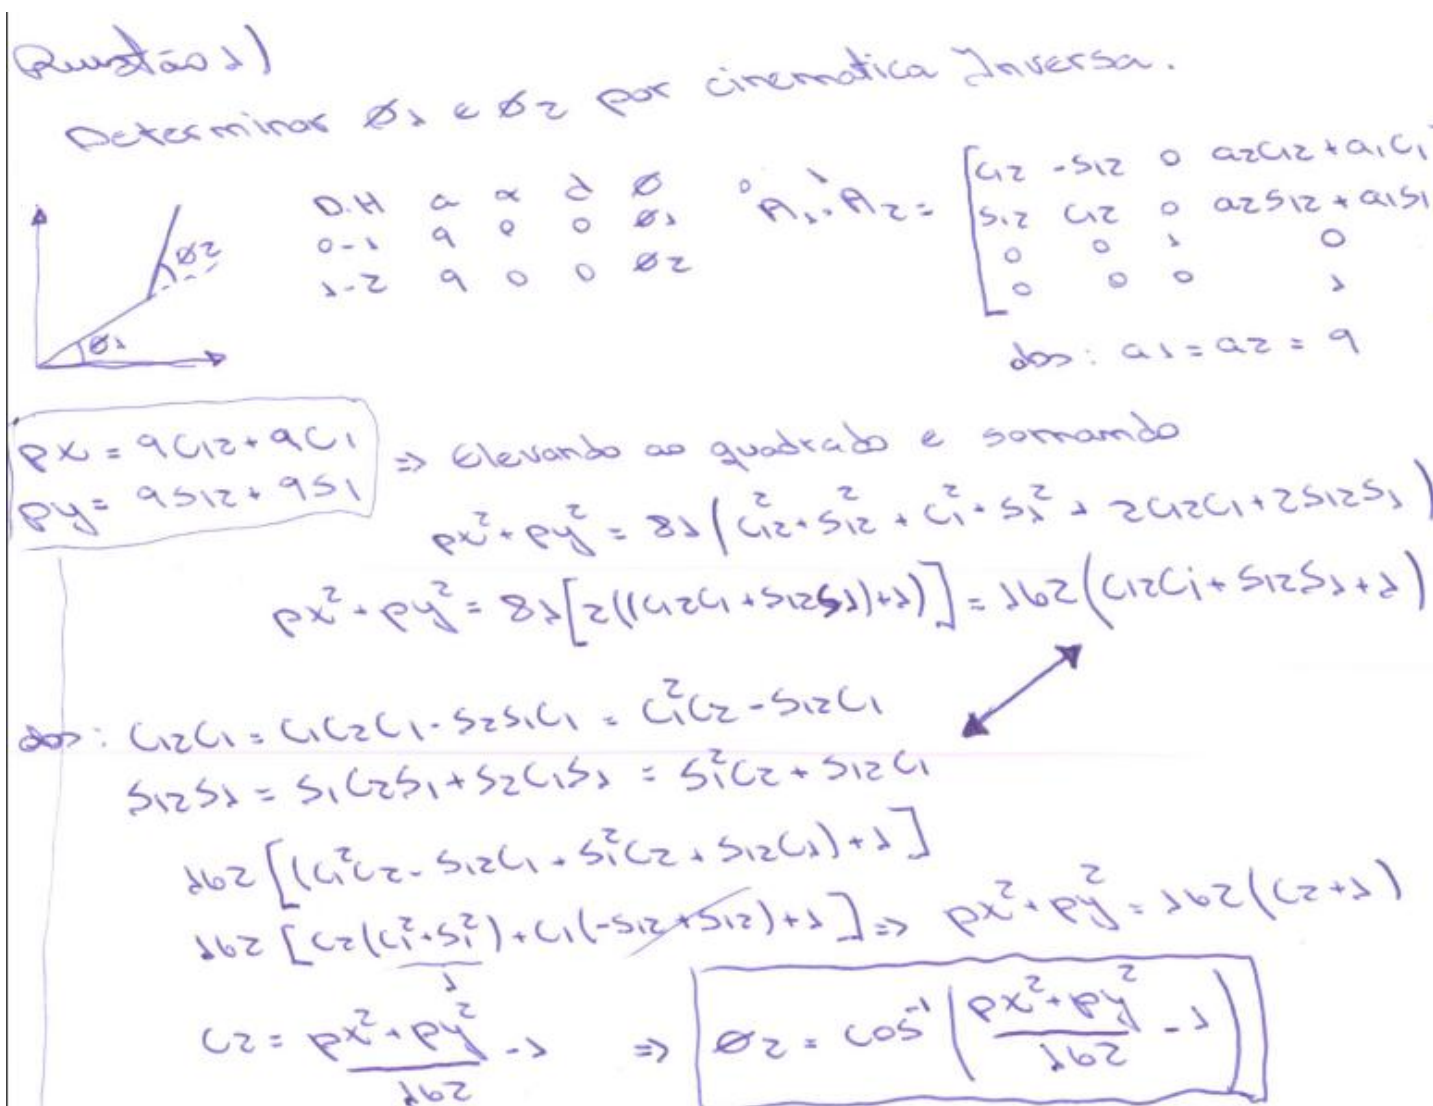 Questão 1)
Determinar ø1 e ø2 por cinematica Inversa.
D.H a α d ø
0-1 9 0 0 ø1
1-2 9 0 0 ø2
ø2
ø1
⁰A1.¹A2 = [C12 -S12 0 a2C12 + a1C1
S12 C12 0 a2S12 + a1S1
0 0 1 0
0 0 0 1
dos: a1 = a2 = 9
px = 9C12 + 9C1
py = 9S12 + 9S1
⇒ Elevando ao quadrado e somando
px² + py² = 81(C12² + S12² + C1² + S1² + 2C12C1 + 2S12S1)
px² + py² = 81[2((C12C1 + S12S1)+1)] = 162(C12C1 + S12S1 + 1)
dos: C12C1 = C1C2C1 - S2S1C1 = C1²C2 - S12C1
S12S1 = S1C2S1 + S2C1S1 = S1²C2 + S12C1
162[(C1²C2 - S12C1 + S1²C2 + S12C1)+1]
162[C2(C1²+S1²) + C1(-S12+S12)+1] ⇒ px² + py² = 162(C2+1)
1
C2 = px² + py² / 162 - 1 ⇒ ø2 = cos⁻¹(px² + py² / 162 - 1)